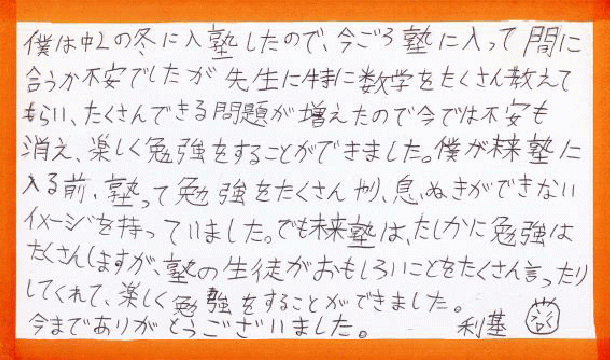 僕は中2の冬に入塾したので、今ごろ塾に入って間に
合うか不安でしたが先生に特に数学をたくさん教えて
もらい、たくさんできる問題が増えたので今では不安も
消え、楽しく勉強をすることができました。僕が未来塾に
入る前、塾って勉強をたくさんやり、息ぬきができない
イメージを持っていました。でも未来塾は、たしかに勉強は
たくさんしますが、塾の生徒がおもしろいことをたくさん言ったり
してくれて、楽しく勉強をすることができました。
今までありがとうございました。 利基